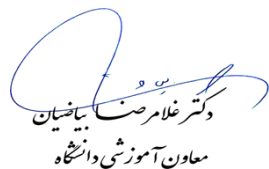 دکتر غلامرضا بیاضیان
معاون آموزشی دانشگاه